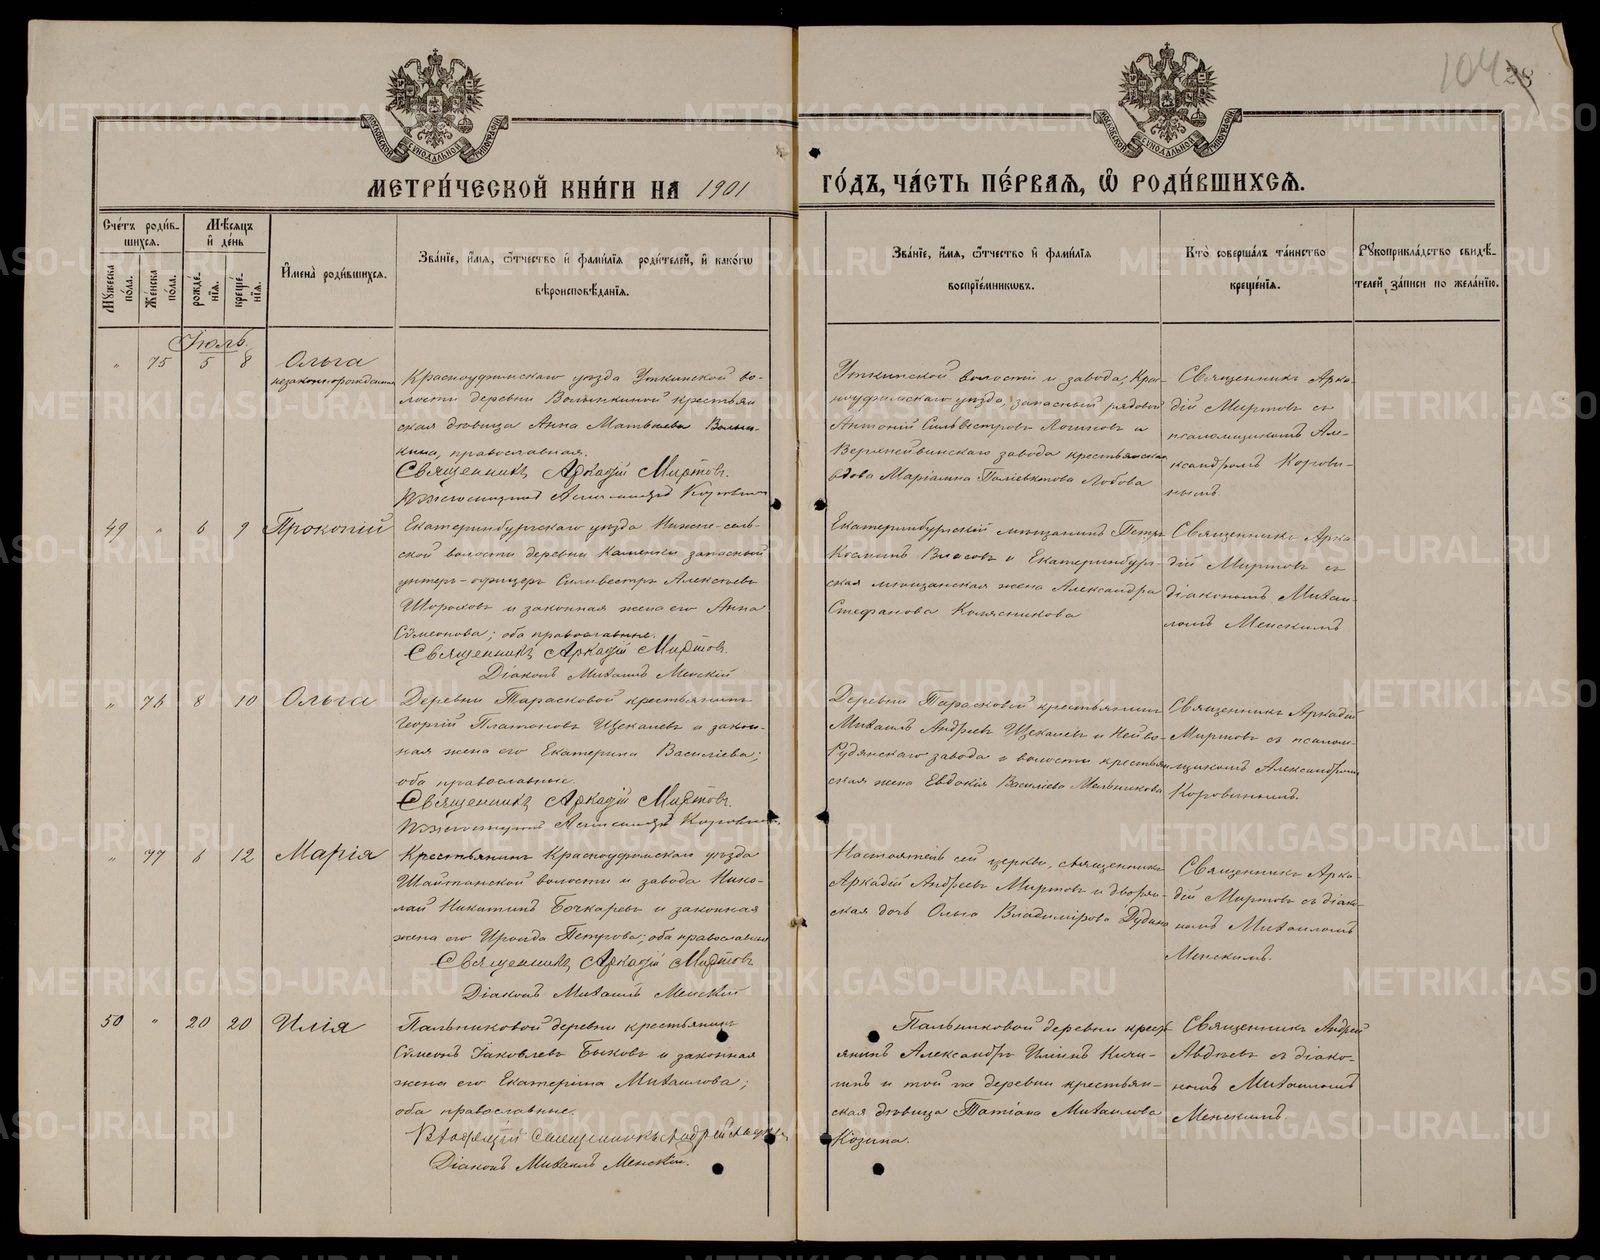 104 28
МОСКОВСКОЙ СѴНОДАЛЬНОЙ ТИПОГРАФІИ
МОСКОВСКОЙ СѴНОДАЛЬНОЙ ТИПОГРАФІИ
МЕТРИ́ЧЕСКОЙ КНИ́ГИ НА 1901 ГО́ДЪ, ЧА́СТЬ ПЕ́РВАЯ, Ѡ҆ РОДИ́ВШИХСЯ.
Сче́тъ роди́в-
шихся.
Мѣ́сяцъ
и҆ де́нь
Мꙋ́жеска по́ла.
Же́нска по́ла.
рожде́-
нїя.
креще́-
нїя.
И҆мена̀ роди́вшихся.
Зва́нїе, и҆́мя, ѻ҆́тчество и҆ фами́лїя роди́телей, и҆ како́гѡ
вѣроисповѣ́данїя.
Зва́нїе, и҆́мя, ѻ҆́тчество и҆ фами́лїя
воспрїе́мниковъ.
Кто̀ соверша́лъ та́инство
креще́нїя.
Рꙋкоприкла́дство свидѣ́-
телей за́писи по жела́нїю.
Іюль
" 75 5 8 Ольга
незаконнорожденная
Красноуфимскаго уѣзда Уткинской во-
лости деревни Волынкиной крестьян
ская дѣвица Анна Матвѣева Волын-
кина, православная.
Священникъ Аркадій Миртовъ.
Псаломщикъ Александръ Коровин
Уткинской волости и завода, Крас-
ноуфимскаго уѣзда, запасный рядовой
Антоній Сильвестровъ Логиновъ и
Верхнейвинскаго завода крестьянская
вдова Маріамна Лобова
Священникъ Арка-
дій Миртовъ съ
псаломщикомъ Але-
ксандромъ Корови-
нымъ.
49 " 6 9 Прокопій
Екатеринбургскаго уѣзда Нижне-сель-
ской волости деревни Каменки запасный
унтеръ-офицеръ Сильвестръ Алексѣевъ
Шороховъ и законная жена его Анна
Сѵмеонова; оба православные.
Священникъ Аркадій Миртовъ.
Діаконъ Михаилъ Менскій
Екатеринбургскій мѣщанинъ Петръ
Космичъ Власовъ и Екатеринбург-
ская мѣщанская жена Александра
Стефанова Колясникова
Священникъ Арка-
дій Миртовъ съ
діакономъ Михаи-
ломъ Менскимъ
" 76 8 10 Ольга
Деревни Тарасковой крестьянинъ
Георгій Платоновъ Щекалевъ и закон-
ная жена его Екатерина Василіева;
оба православные.
Священникъ Аркадій Миртовъ.
Псаломщикъ Александръ Коровин
Деревни Тарасковой крестьянинъ
Михаилъ Андреевъ Щекалевъ и Нейво-
Рудянскаго завода и волости крестьян
ская жена Евдокія Василіева Мельникова
Священникъ Аркадій
Миртовъ съ псалом-
щикомъ Александромъ
Коровинымъ.
" 77 6 12 Марія
Крестьянинъ Красноуфимскаго уѣзда
Шайтанской волости и завода Нико-
лай Никитинъ Бочкаревъ и законная
жена его Ироида Петрова; оба православные
Священникъ Аркадій Миртовъ
Діаконъ Михаилъ Менскій
Настоятель сей церкви, священникъ
Аркадій Андреевъ Миртовъ и дворян-
ская дочь Ольга Владимірова Дудина
Священникъ Арка-
дій Миртовъ съ діако-
номъ Михаиломъ
Менскимъ.
50 " 20 20 Илія
Пальниковой деревни крестьянинъ
Сѵмеонъ Іаковлевъ Быковъ и законная
жена его Екатерина Михаилова;
оба православные.
Священникъ Андрей
Діаконъ Михаилъ Менскій.
Пальниковой деревни крест-
янинъ Александръ Иліинъ Кичи-
гинъ и той же деревни крестьян-
ская дѣвица Татіана Михаилова
Козина.
Священникъ Андрей
Авдѣевъ съ діако-
номъ Михаиломъ
Менскимъ.
METRIKI.GASO-URAL.RU